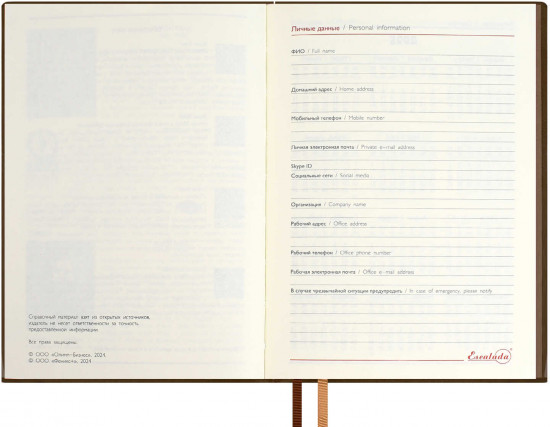 Справочный материал взят из открытых источников,
издатель не несет ответственности за точность
предоставленной информации.
Все права защищены.
© ООО 2024.
© ООО «Феникс+», 2024
Личные данные / Personal information
ФИО / Full name
Домашний адрес / Home address
Мобильный телефон / Mobile number
Личная электронная почта / Private e-mail address
Skype ID
Социальные сети / Social media
Организация / Company name
Рабочий адрес / Office address
Рабочий телефон / Office phone number
Рабочая электронная почта / Office e-mail address
В случае чрезвычайной ситуации предупредить / In case of emergency, please notify
Escalada